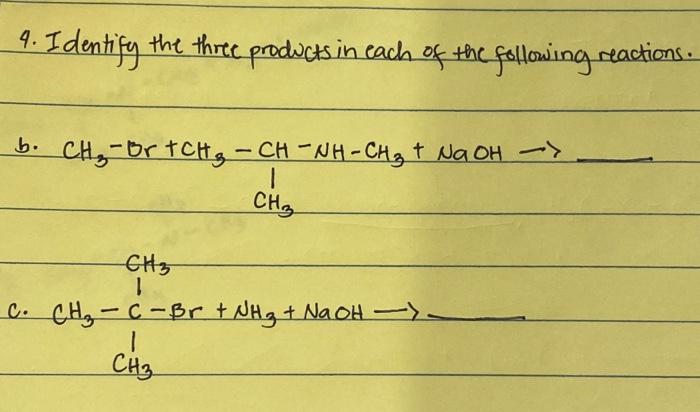 9. Identify the three products in each of the following reactions.
b. CH3-Br + CH3 - CH - NH - CH3 + NaOH -> ____
|
CH3
CH3
|
c. CH3 - C - Br + NH3 + NaOH -> ____
|
CH3